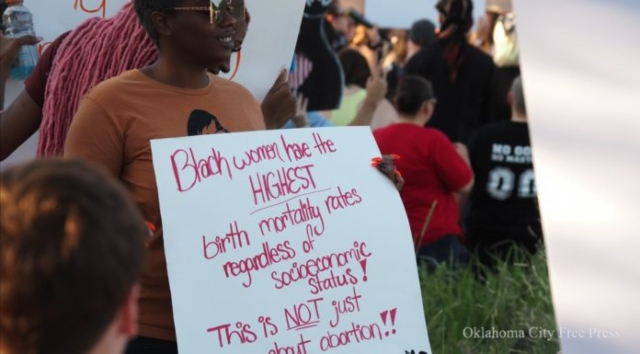 Black women have the
HIGHEST
birth mortality rates
regardless of
socioeconomic
status!
This is NOT just
about abortion!!
NO GO
NO MAST
Oklahoma City Free Press